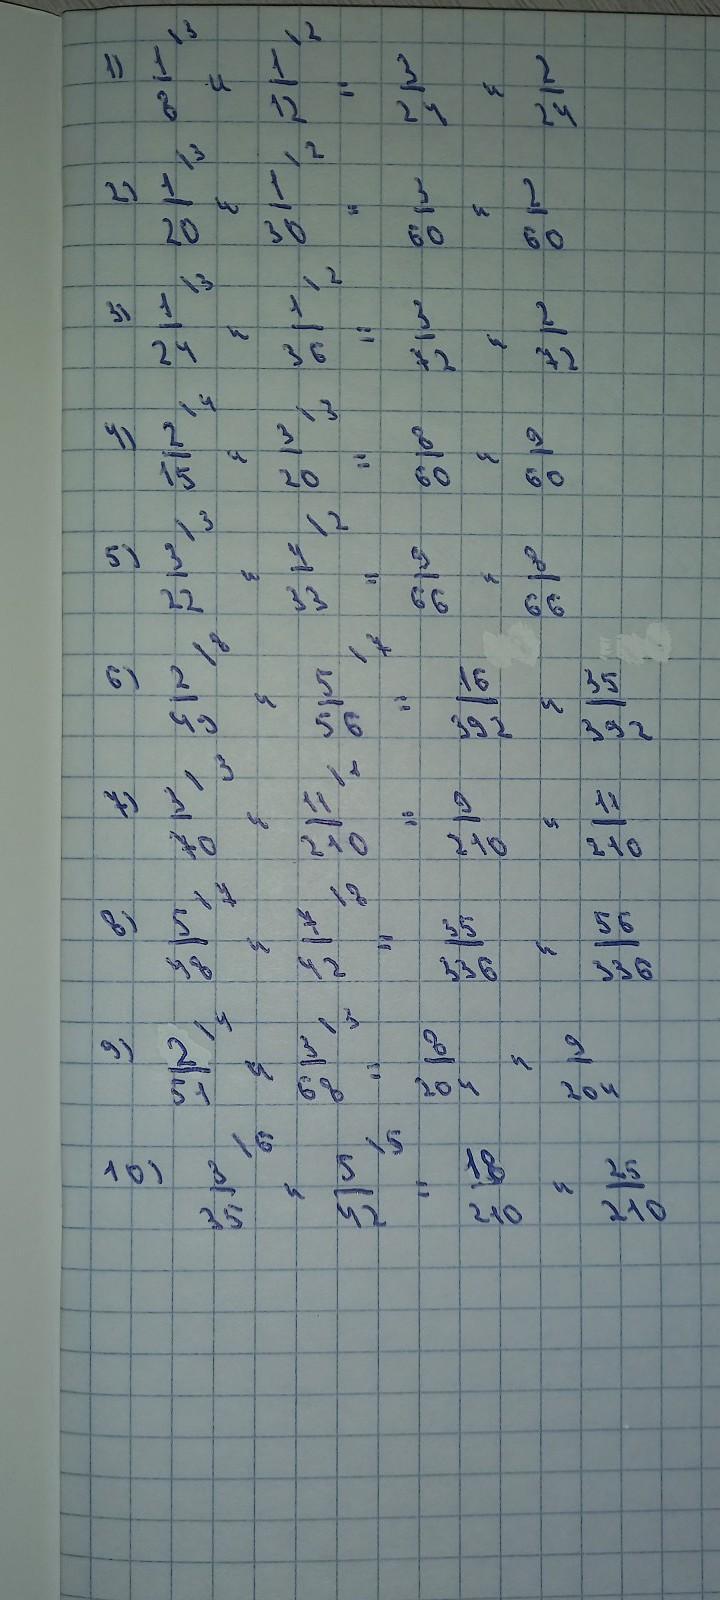 1) 1/8 \3 и 1/12 \2 = 3/24 и 2/24
2) 1/20 \3 и 1/30 \2 = 3/60 и 2/60
3) 1/24 \3 и 1/36 \2 = 3/72 и 2/72
4) 2/15 \4 и 3/20 \3 = 8/60 и 9/60
5) 3/22 \3 и 4/33 \2 = 9/66 и 8/66
6) 2/49 \8 и 5/56 \7 = 16/392 и 35/392
7) 3/70 \3 и 11/210 \2 = 9/210 и 11/210
8) 5/48 \7 и 7/42 \8 = 35/336 и 56/336
9) 2/51 \4 и 3/68 \3 = 8/204 и 9/204
10) 3/35 \6 и 5/42 \5 = 18/210 и 25/210